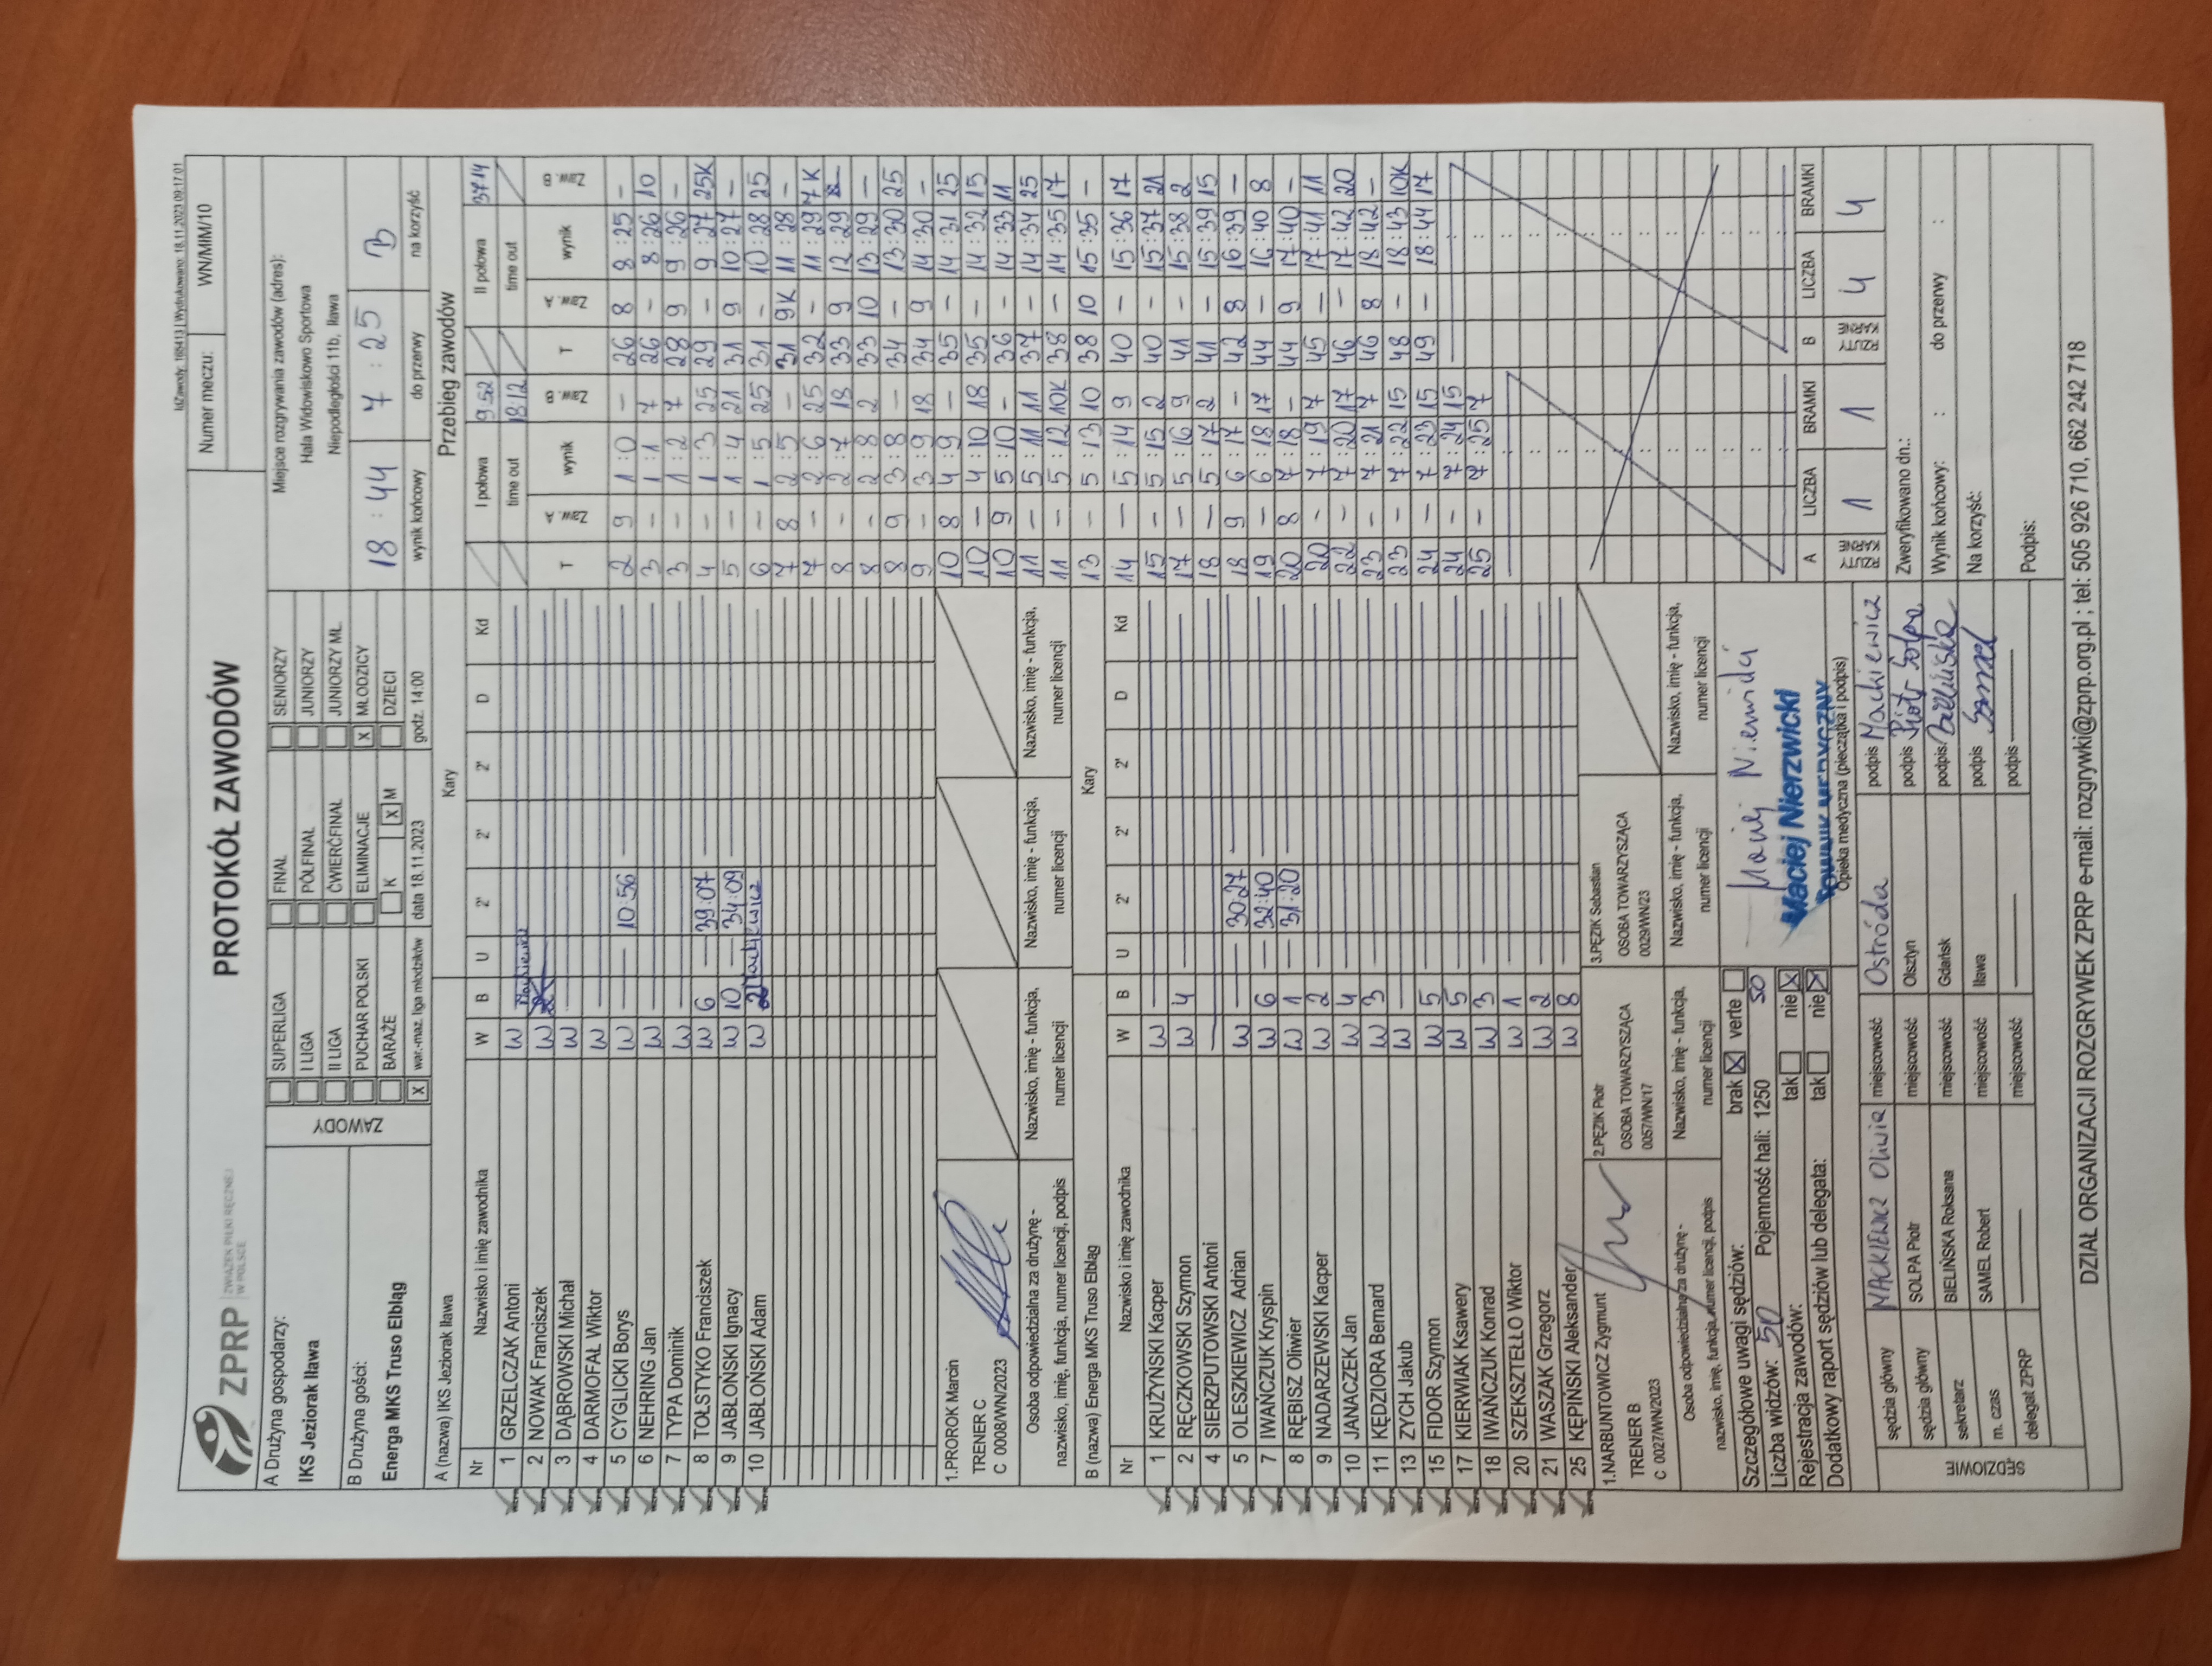 IdZawody: 165413 | Wydrukowano: 18.11.2023 09:17:01
ZPRP ZWIĄZEK PIŁKI RĘCZNEJ W POLSCE
PROTOKÓŁ ZAWODÓW
Numer meczu: WN/MłM/10
A Drużyna gospodarzy:
IKS Jeziorak Iława
B Drużyna gości:
Energa MKS Truso Elbląg
ZAWODY
SUPERLIGA FINAŁ SENIORZY
I LIGA PÓŁFINAŁ JUNIORZY
II LIGA ĆWIERĆFINAŁ JUNIORZY MŁ.
PUCHAR POLSKI ELIMINACJE X MŁODZICY
BARAŻE K X M DZIECI
X war.-maz. liga młodzików data 18.11.2023 godz. 14:00
Miejsce rozgrywania zawodów (adres):
Hala Widowiskowo Sportowa
Niepodległości 11b, Iława
18 : 44 7 : 25 B
wynik końcowy do przerwy na korzyść
A (nazwa) IKS Jeziorak Iława Kary
Nr Nazwisko i imię zawodnika W B U 2' 2' 2' D Kd
1 GRZELCZAK Antoni W
2 NOWAK Franciszek W
3 DĄBROWSKI Michał W
4 DARMOFAŁ Wiktor W
5 CYGLICKI Borys W — 10:56 —
6 NEHRING Jan W
7 TYPA Dominik W
8 TOLSTYKO Franciszek W 6 — 39:07 —
9 JABŁOŃSKI Ignacy W 10 — 34:09 —
10 JABŁOŃSKI Adam W 2
1.PROROK Marcin
TRENER C
C 0008/WN/2023
Osoba odpowiedzialna za drużynę -
nazwisko, imię, funkcja, numer licencji, podpis
Nazwisko, imię - funkcja, numer licencji
Nazwisko, imię - funkcja, numer licencji
Nazwisko, imię - funkcja, numer licencji
B (nazwa) Energa MKS Truso Elbląg Kary
Nr Nazwisko i imię zawodnika W B U 2' 2' 2' D Kd
1 KRUŻYŃSKI Kacper W —
2 RĘCZKOWSKI Szymon W 4
4 SIERZPUTOWSKI Antoni —
5 OLESZKIEWICZ Adrian W — 30:27 —
7 IWAŃCZUK Kryspin W 6 — 32:40 —
8 RĘBISZ Oliwier W 1 — 31:20 —
9 NADARZEWSKI Kacper W 2
10 JANACZEK Jan W 4
11 KĘDZIORA Bernard W 3
13 ZYCH Jakub W —
15 FIDOR Szymon W 5
17 KIERWIAK Ksawery W 5
18 IWAŃCZUK Konrad W 3
20 SZEKSZTEŁŁO Wiktor W 1
21 WASZAK Grzegorz W 2
25 KĘPIŃSKI Aleksander W 8
1.NARBUNTOWICZ Zygmunt
TRENER B
C 0027/WN/2023
2.PĘZIK Piotr
OSOBA TOWARZYSZĄCA
0057/WN/17
3.PĘZIK Sebastian
OSOBA TOWARZYSZĄCA
0029/WN/23
Osoba odpowiedzialna za drużynę -
nazwisko, imię, funkcja, numer licencji, podpis
Nazwisko, imię - funkcja, numer licencji
Nazwisko, imię - funkcja, numer licencji
Nazwisko, imię - funkcja, numer licencji
Szczegółowe uwagi sędziów: brak X verte
Liczba widzów: 50 Pojemność hali: 1250 50
Rejestracja zawodów: tak nie X
Dodatkowy raport sędziów lub delegata: tak nie X
Maciej Nierzwicki
Opieka medyczna (pieczątka i podpis)
SĘDZIOWIE
sędzia główny MACKIEWICZ Oliwia miejscowość Ostróda podpis Mackiewicz
sędzia główny SOLPA Piotr miejscowość Olsztyn podpis Piotr Solpa
sekretarz BIELIŃSKA Roksana miejscowość Gdańsk podpis Bielińska
m. czas SAMEL Robert miejscowość Iława podpis Samel
delegat ZPRP — miejscowość — podpis —
Przebieg zawodów
I połowa 9 52 II połowa 37 14
time out 18:12 time out
T Zaw. A wynik Zaw. B T Zaw. A wynik Zaw. B
2 9 1 : 0 — 26 8 8 : 25 —
3 — 1 : 1 7 26 — 8 : 26 10
3 — 1 : 2 7 28 9 9 : 26 —
4 — 1 : 3 25 29 — 9 : 27 25K
5 — 1 : 4 21 31 9 10 : 27 —
6 — 1 : 5 25 31 — 10 : 28 25
7 8 2 : 5 — 31 9K 11 : 28 —
7 — 2 : 6 25 32 — 11 : 29 7K
8 — 2 : 7 18 33 9 12 : 29
8 — 2 : 8 2 33 10 13 : 29 —
8 9 3 : 8 — 34 — 13 : 30 25
9 — 3 : 9 18 34 9 14 : 30 —
10 8 4 : 9 — 35 — 14 : 31 25
10 — 4 : 10 18 35 — 14 : 32 15
10 9 5 : 10 — 36 — 14 : 33 11
11 — 5 : 11 11 37 — 14 : 34 25
11 — 5 : 12 10K 38 — 14 : 35 17
13 — 5 : 13 10 38 10 15 : 35 —
14 — 5 : 14 9 40 — 15 : 36 17
15 — 5 : 15 2 40 — 15 : 37 21
17 — 5 : 16 9 41 — 15 : 38 2
18 — 5 : 17 2 41 — 15 : 39 15
18 9 6 : 17 — 42 8 16 : 39 —
19 — 6 : 18 17 44 — 16 : 40 8
20 8 7 : 18 — 44 9 17 : 40 —
20 — 7 : 19 7 45 — 17 : 41 11
22 — 7 : 20 17 46 — 17 : 42 20
23 — 7 : 21 7 46 8 18 : 42 —
23 — 7 : 22 15 48 — 18 : 43 10K
24 — 7 : 23 15 49 — 18 : 44 17
24 — 7 : 24 15
25 — 7 : 25 7
A LICZBA BRAMKI B LICZBA BRAMKI
RZUTY KARNE 1 1 RZUTY KARNE 4 4
Zweryfikowano dn.:
Wynik końcowy: : do przerwy :
Na korzyść:
Podpis:
DZIAŁ ORGANIZACJI ROZGRYWEK ZPRP e-mail: rozgrywki@zprp.org.pl ; tel: 505 926 710, 662 242 718